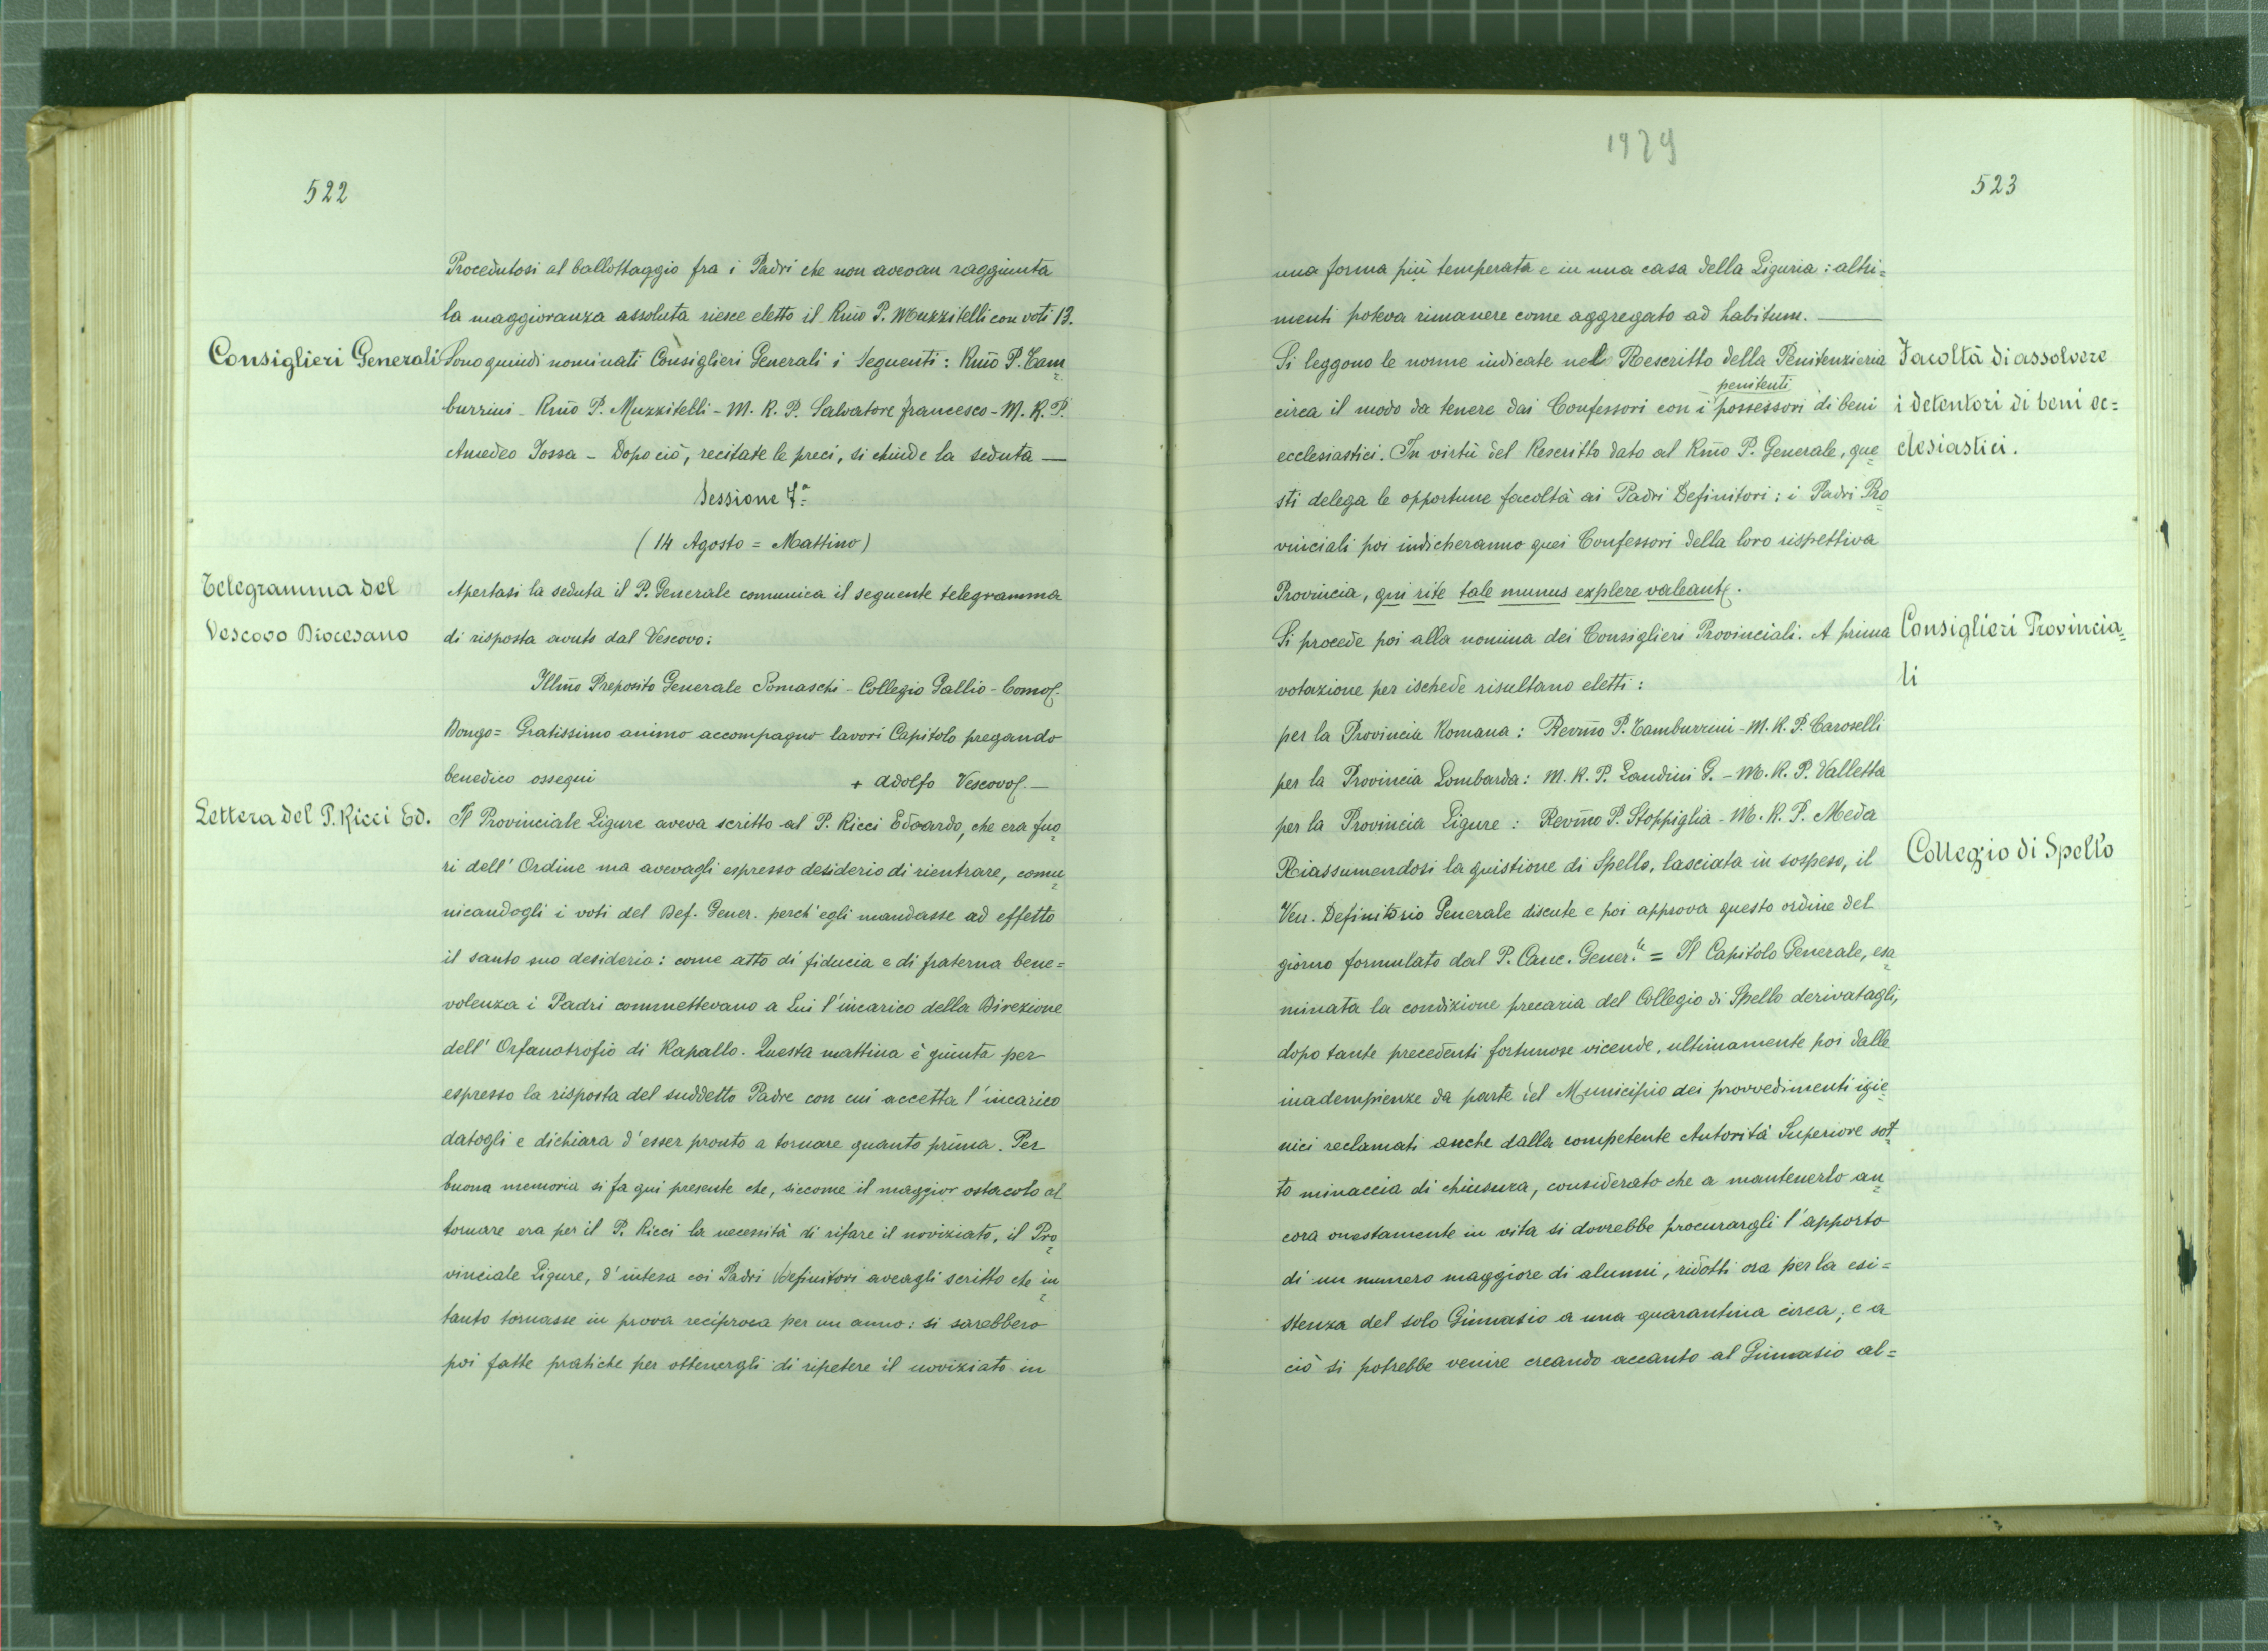 522
Procedutosi al ballottaggio fra i Padri che non avevan raggiunta
la maggioranza assoluta riesce eletto il Rm̃o P. Muzzitelli con voti 13.
Consiglieri Generali
Sono quindi nominati Consiglieri Generali i seguenti: Rm̃o P. Tam=
burrini - Rm̃o P. Muzzitelli - M. R. P. Salvatore Francesco - M. R. P.
Amedeo Jossa - Dopo ciò, recitate le preci, si chiude la seduta —
Sessione 7ª
(14 Agosto = Mattino)
Telegramma del
Vescovo Diocesano
Apertasi la seduta il P. Generale comunica il seguente telegramma
di risposta avuto dal Vescovo:
Illm̃o Preposito Generale Somaschi - Collegio Gallio - Como.
Dongo = Gratissimo animo accompagno lavori Capitolo pregando
benedico ossequi + Adolfo Vescovo. —
Lettera del P. Ricci Ed.
Il Provinciale Ligure aveva scritto al P. Ricci Edoardo, che era fuo=
ri dell' Ordine ma avevagli espresso desiderio di rientrare, comu=
nicandogli i voti del Def. Gener. perch' egli mandasse ad effetto
il santo suo desiderio: come atto di fiducia e di fraterna bene=
volenza i Padri commettevano a Lui l'incarico della Direzione
dell' Orfanotrofio di Rapallo. Questa mattina è giunta per
espresso la risposta del suddetto Padre con cui accetta l'incarico
datogli e dichiara d'esser pronto a tornare quanto prima. Per
buona memoria si fa qui presente che, siccome il maggior ostacolo al
tornare era per il P. Ricci la necessità di rifare il noviziato, il Pro=
vinciale Ligure, d'intesa coi Padri Definitori aveagli scritto che in=
tanto tornasse in prova reciproca per un anno: si sarebbero
poi fatte pratiche per ottenergli di ripetere il noviziato in
1929
523
una forma più temperata e in una casa della Liguria: altri=
menti poteva rimanere come aggregato ad habitum. —
Facoltà di assolvere
i detentori di beni ec=
clesiastici.
Si leggono le norme indicate nel Rescritto della Penitenzieria
penitenti
circa il modo da tenere dai Confessori con i possessori di beni
ecclesiastici. In virtù del Rescritto dato al Rm̃o P. Generale, que=
sti delega le opportune facoltà ai Padri Definitori; i Padri Pro=
vinciali poi indicheranno quei Confessori della loro rispettiva
Provincia, qui rite tale munus explere valeant.
Consiglieri Provincia=
li
Si procede poi alla nomina dei Consiglieri Provinciali. A prima
votazione per ischede risultano eletti:
per la Provincia Romana: Revm̃o P. Tamburrini - M. R. P. Caroselli
per la Provincia Lombarda: M. R. P. Landini G. - M. R. P. Valletta
per la Provincia Ligure: Revm̃o P. Stoppiglia - M. R. P. Meda
Collegio di Spello
Riassumendosi la quistione di Spello, lasciata in sospeso, il
Ven. Definitorio Generale discute e poi approva questo ordine del
giorno formulato dal P. Canc. Gener.le = Il Capitolo Generale, esa=
minata la condizione precaria del Collegio di Spello derivatagli,
dopo tante precedenti fortunose vicende, ultimamente poi dalle
inadempienze da parte del Municipio dei provvedimenti igie=
nici reclamati anche dalla competente Autorità Superiore sot=
to minaccia di chiusura, considerato che a mantenerlo an=
cora onestamente in vita si dovrebbe procurargli l'apporto
di un numero maggiore di alunni, ridotti ora per la esi=
stenza del solo Ginnasio a una quarantina circa; e a
ciò si potrebbe venire creando accanto al Ginnasio al=